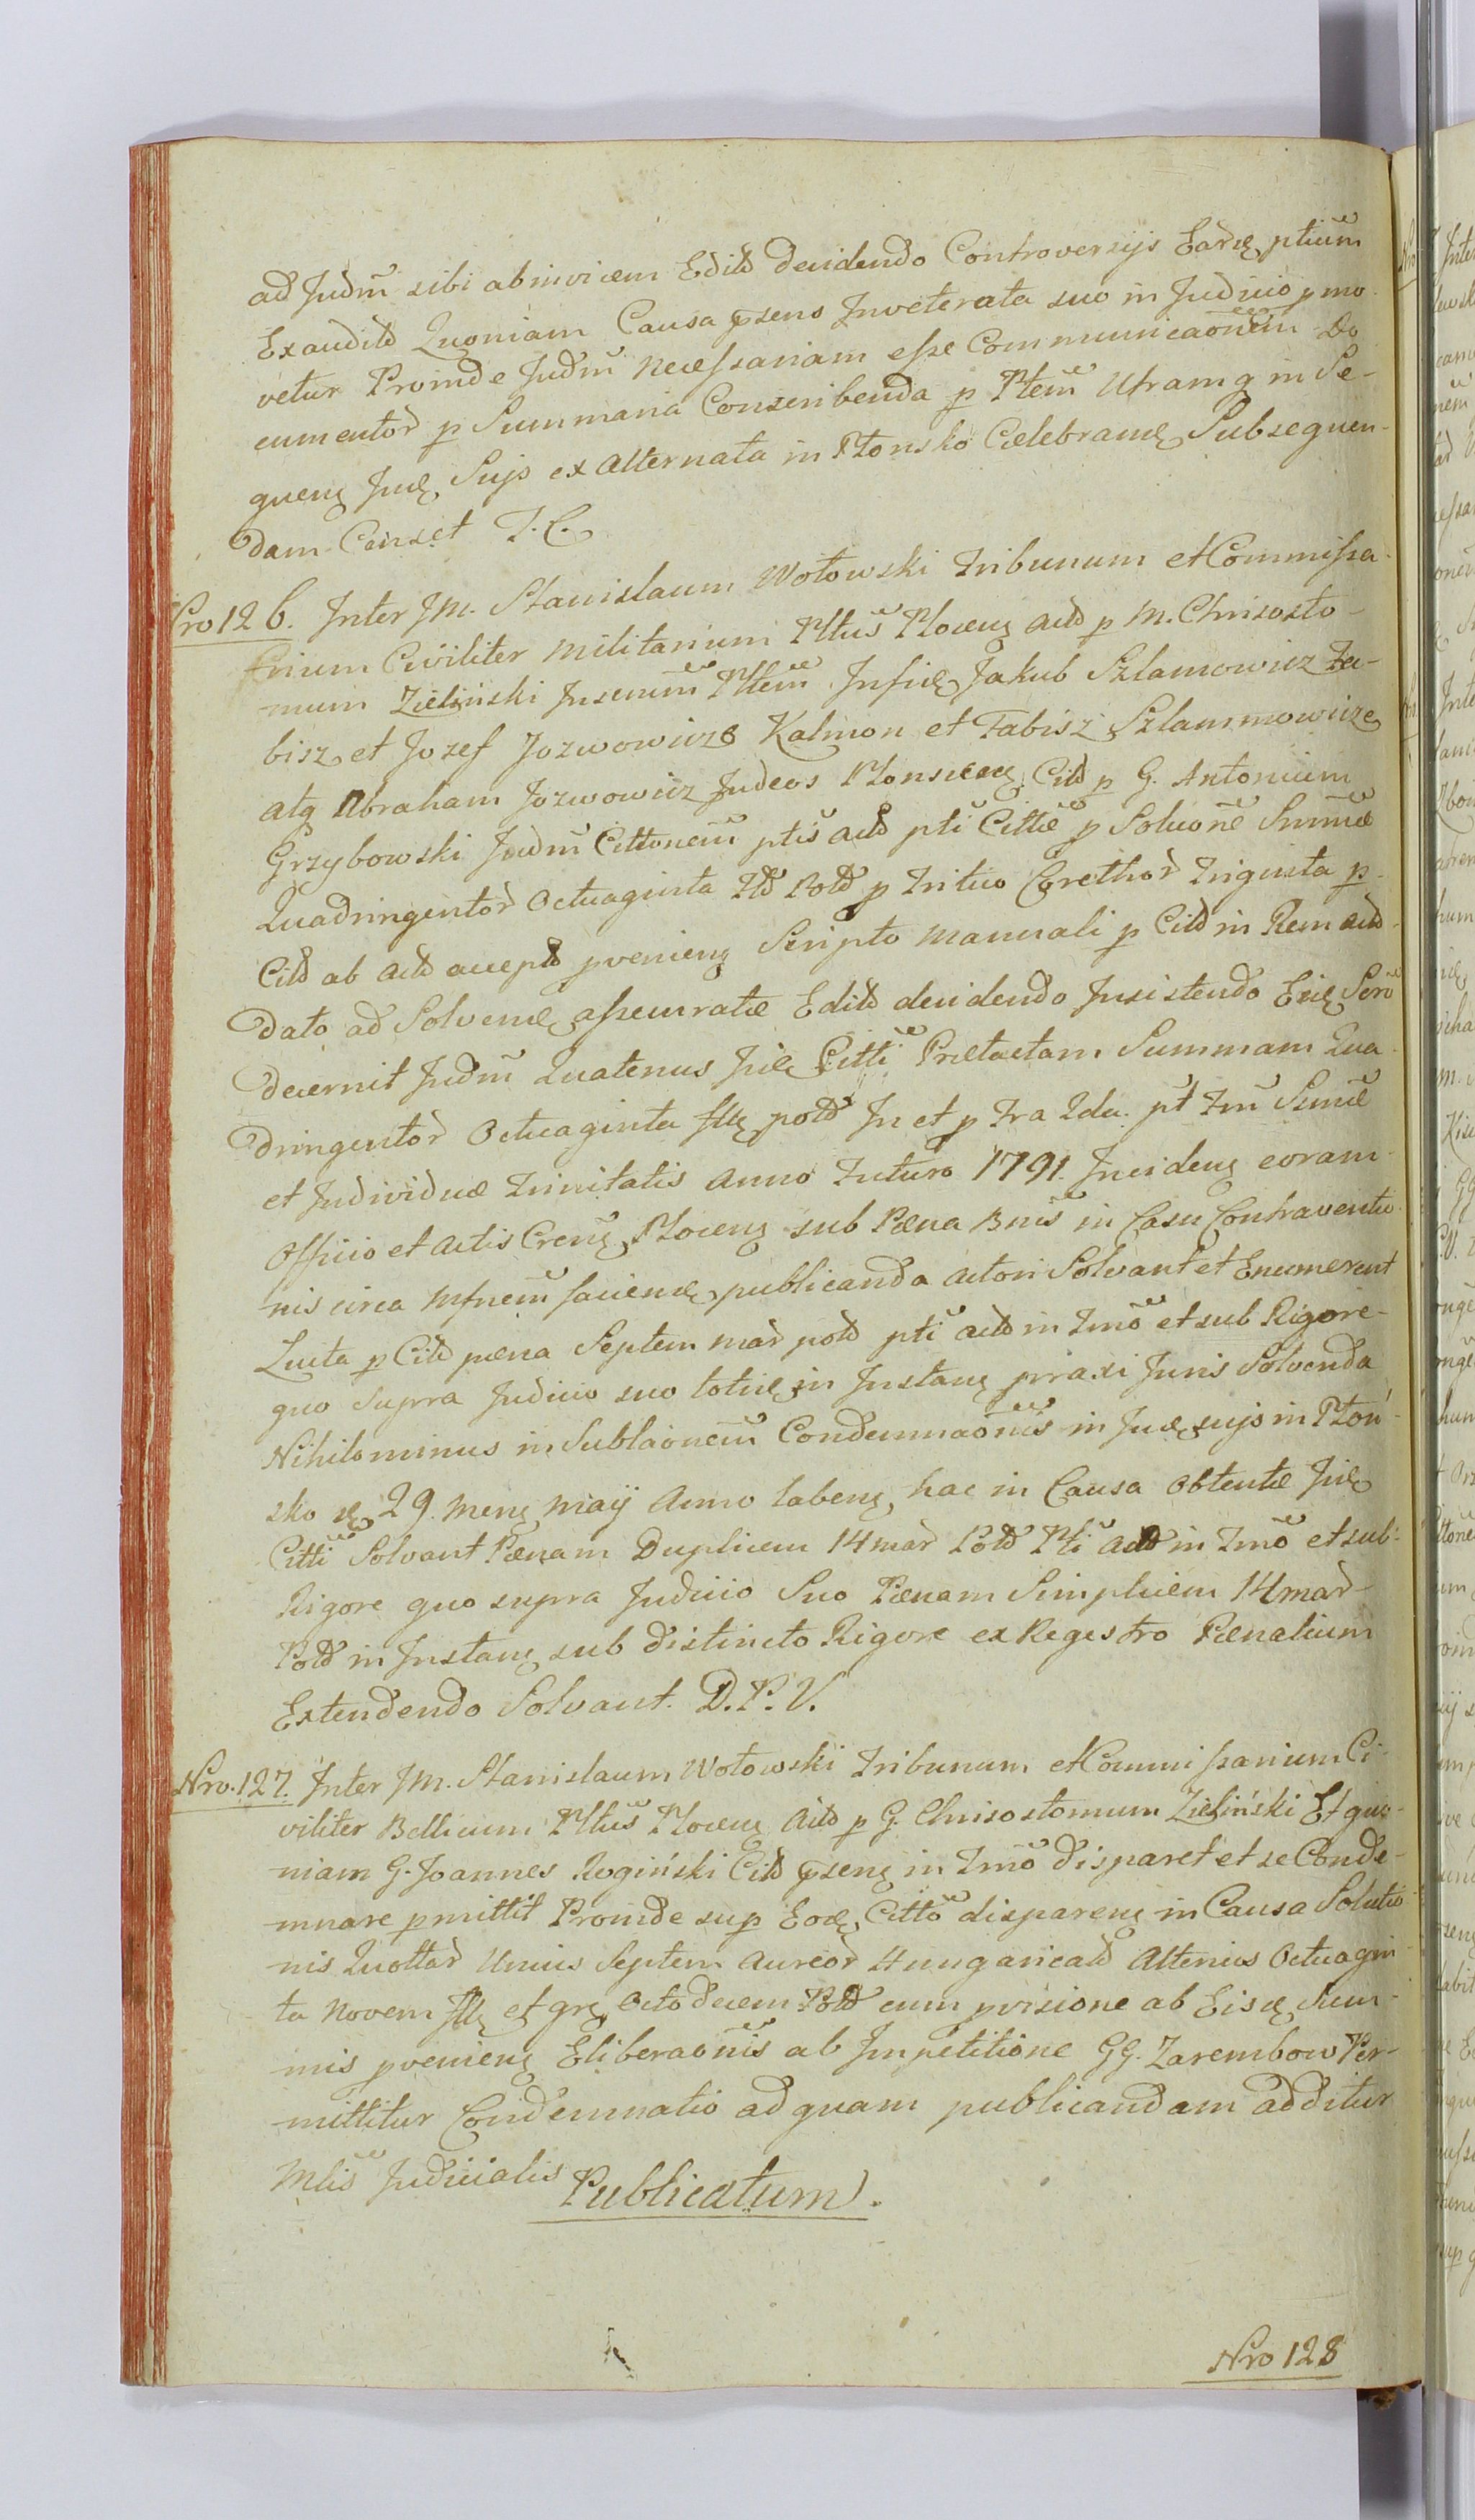 ad Judm̃ sibi abinvicem Edito decidendo Controversijs Earde ptium̃
Exaudito Quoniam Causa psens Inveterata suo in Judicio pmo
vetur Proinde Judm̃ necessariam esse Communicaonem̃ Do
cumentor p Summaria Conscribenda p Ptem̃ Utramq in Se-
quens Jud Sujs ex Alternata in Płonsko Celebrand Subsequen-
dam Censet T. C.
Nro 126. Inter JM. Stanislaum Wołowski Tribunum et Commissa-
rium Civiliter Militarium Pltus̃ Plocens Acto p M. Chrisosto-
mum Zieliński Juscrum̃ Pltem̃ Infid Jakub Szlamowicz Fa-
bisz et Jozef Jozwowicze Kalmon et Fabisz Szlammowicze
atq Abraham Jozwowicz Judeos Plonscens Cito p G. Antonium
Grzybowski Judm̃ Cittonem̃ ptis acto pti Cittæ p Soluone Sum̃æ
Quadringentor Octuaginta Flo Polo p Tritico Corethor Triginta p
Cito ab Acto accepto pveniens Scripto Manuali p Cito in Rem Acto
dato ad Solvend assecuratæ Edito decidendo Insistendo
decernit Judm̃ Quatenus Jid Citti Prætactam Summam Qua-
dringentor Octuaginta flls polo In et p Fra 2da. pt̃ Fm̃ Sanctæ
et Individuæ Trinitatis Anno Futuro 1791. Incidens coram
Officio et Actis Crens Plocens sub Pæna Bnis̃ in Casu Contraventio
nis circa Mfnem̃ faciend publicanda Actori Solvant et Enumerent
Luita p Cito pæna Septem mar polo pti acto in Fmo et sub Rigore
quo supra Judicio suo totid in Instans praxi Juris Solvenda
Nihilominus in Sublaonem̃ Condemnaonis̃ in Jud sujs in Płoń-
sko de 29. Mens Maij Anno labens hac in Causa Obtentæ Jid
Citti Solvant Pænam Duplicem 14 mar Polo Pti Acto in Fmo et sub
Rigore quo supra Judicio Suo Pænam Simplicem 14 mar
Polo in Instans sub distincto Rigore ex Regestro Pænalium
Extendendo Solvant. D. P. V.
Nro. 127. Inter JM. Stanislaum Wołowski Tribunum et Commissarium Ci-
viliter Bellicum Pltus̃ Plocens Acto p G. Chrisostomum Zieliński Et quo-
niam G. Joannes Rogiński Cito psens in Fmo disparet et se Conde-
mnare pmittit Proinde sup Eod Citto dispares in Causa Solutio
nis Quottar Unius Septem Aureor Hungaricalo Alterius Octuagin
ta Novem flls et grs Octodecem Polo cum pvisione ab Eisd Sum-
mis pveniens Eliberaonis̃ ab Impetitione GG. Zarembow Per-
mittitur Condemnatio ad quam publicandam additur
Mlis̃ Judicialis Publicatum.
Nro 128